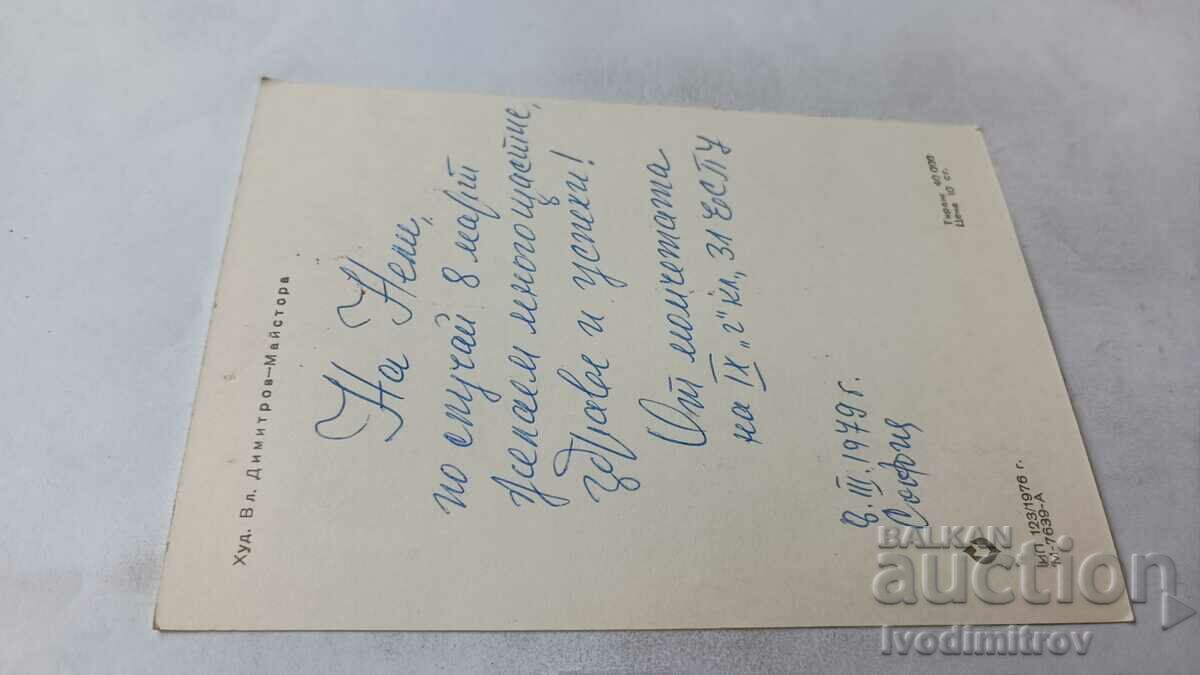 Худ. Вл. Димитров—Майстора
На Нели,
по случай 8 март
желаем много щастие,
здраве и успехи!
От момчетата
на IX „г“ кл., 31 ЕСПУ
8. III. 1979 г.
София
ИП 123/1976 г.
М-7639-А
Тираж 40 000
Цена 10 ст.
BALKAN
auction
Ivodimitrov